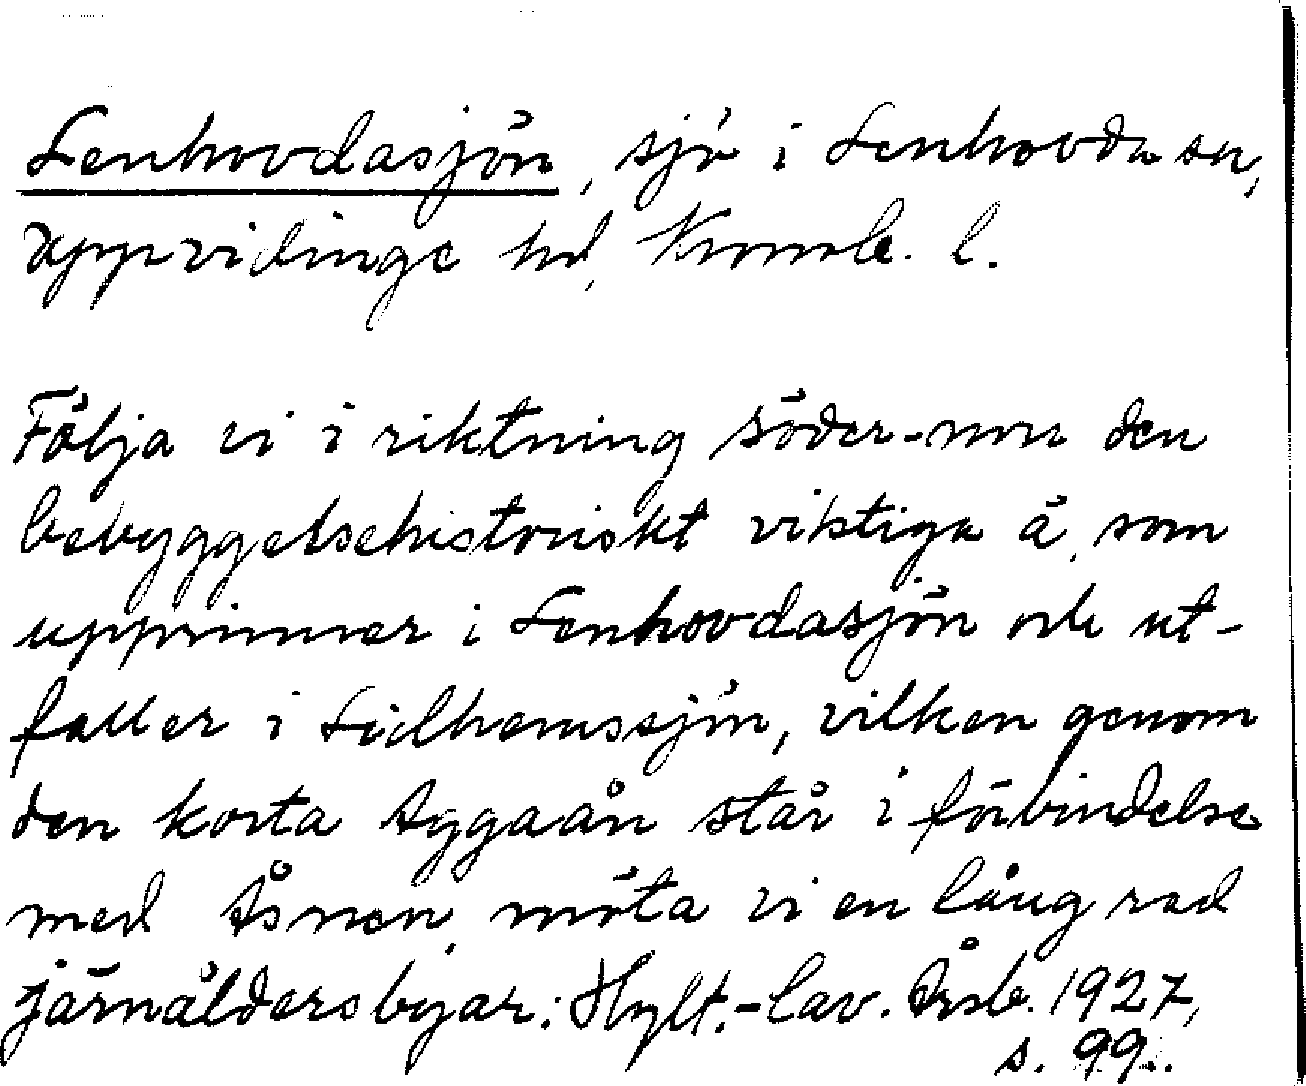 Lenhovdasjön, sjö i Lenhovda sn,
Uppvidinge hd, Kronob. l.
Följa vi i riktning söder-norr den
bebyggelsehistoriskt viktiga å, som
upprinner i Lenhovdasjön och ut-
faller i Lidhemssjön, vilken genom
den korta Aggaån står i förbindelse
med Åsnen, möta vi en lång rad
järnåldersbyar: Hylt.-Cav. Årsb. 1927,
s. 99.